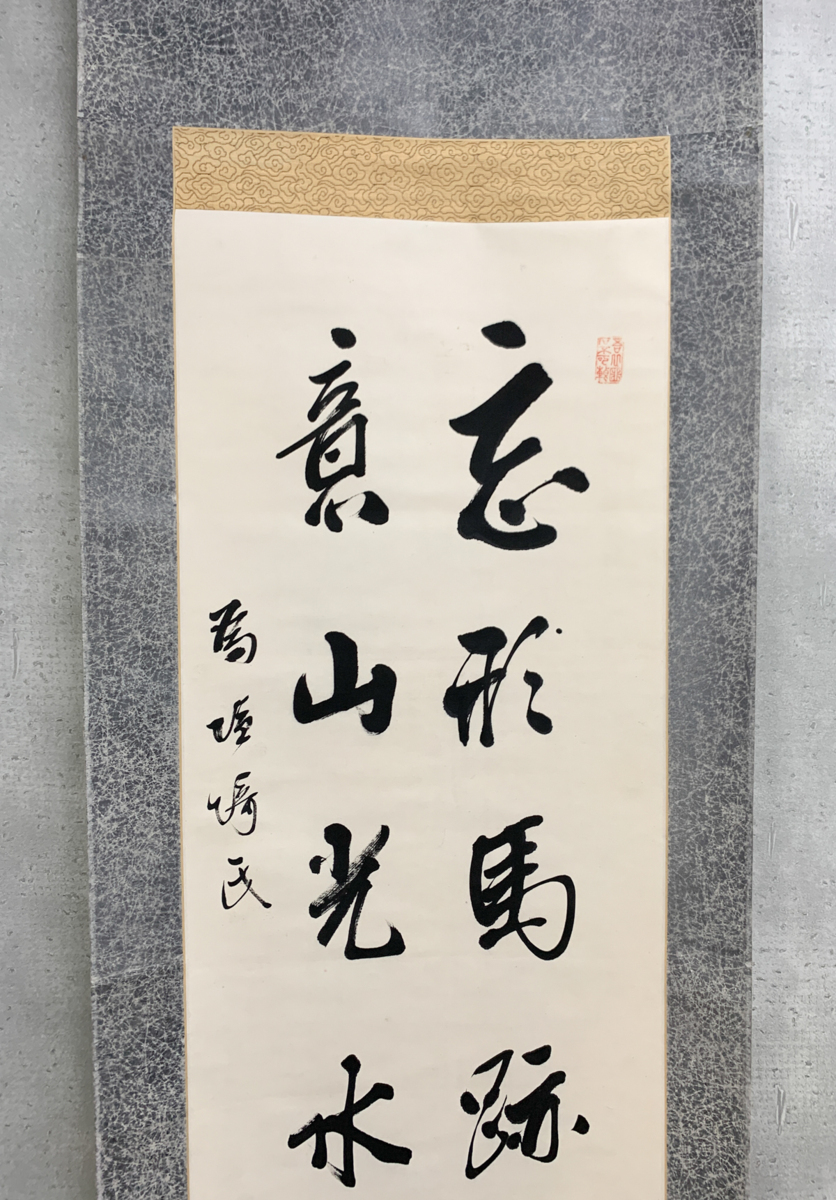 忘形馬跡
意山光水
為塩崎氏